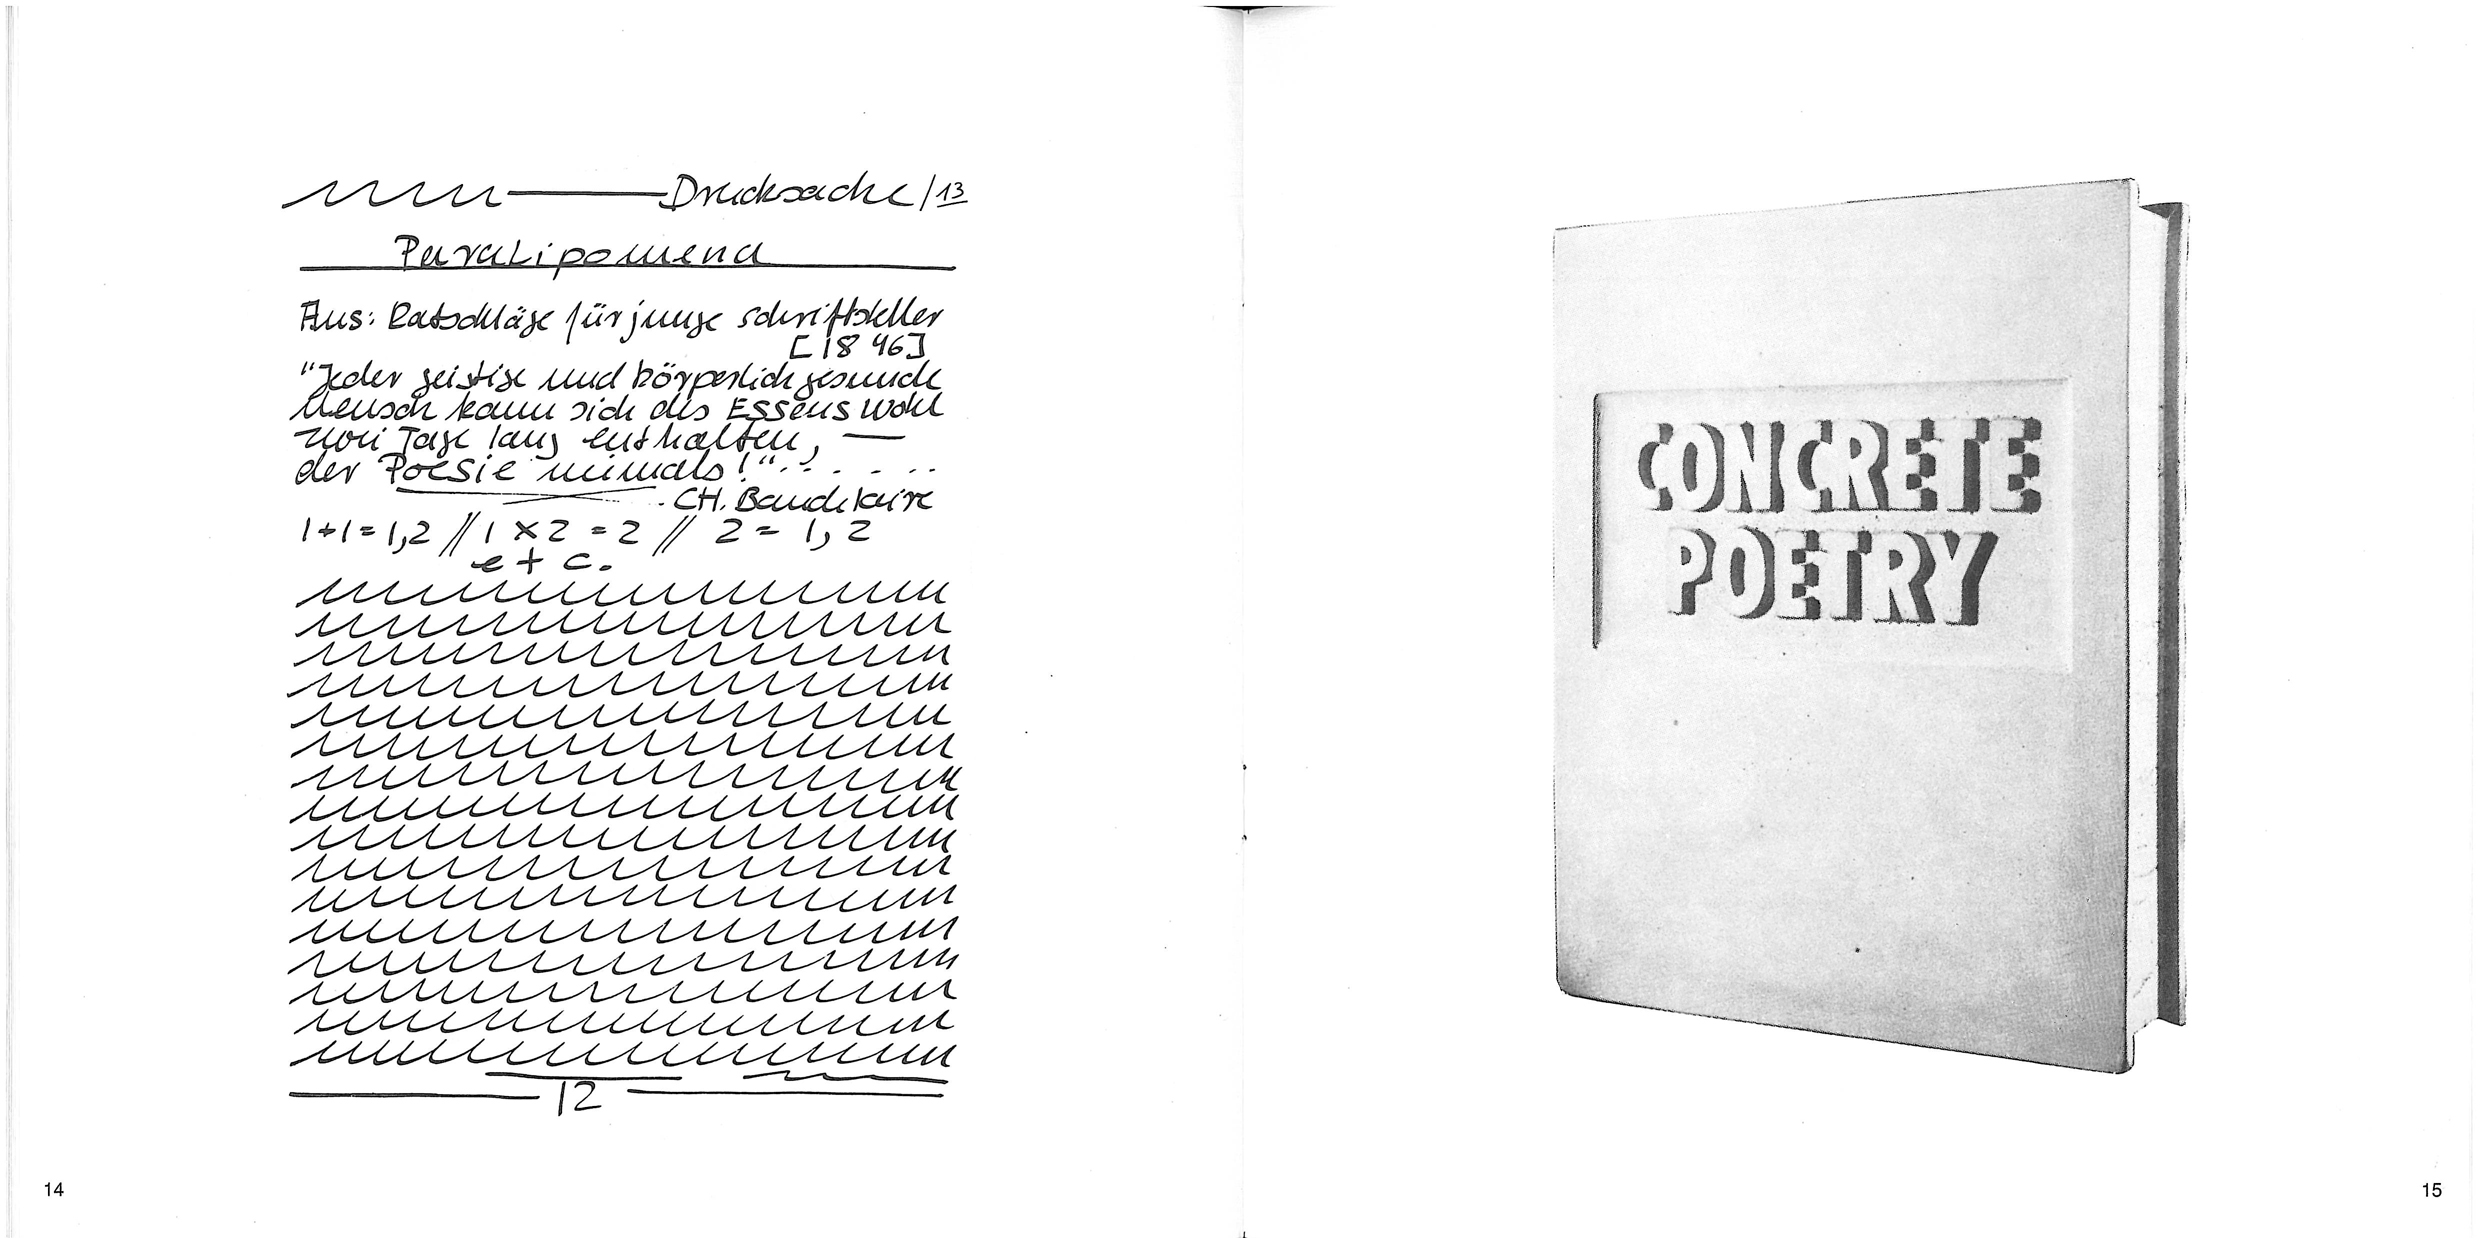 Drucksache/13
Paralipomena
Aus: Ratschläge für junge Schriftsteller
[1846]
"Jeder geistige und körperlich gesunde
Mensch kann sich des Essens wohl
zwei Tage lang enthalten, —
der Poesie niemals!"
CH. Baudelaire
1+1=1,2 // 1 x 2 = 2 // 2 = 1, 2
e + c.
12
14
CONCRETE
POETRY
15